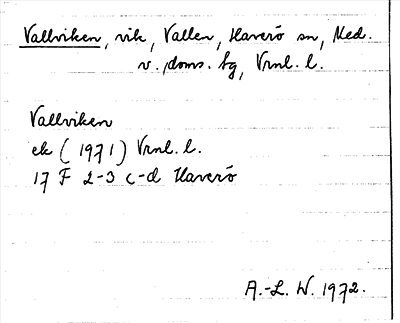 Vallviken, vik, Vallen, Haverö sn, Med.
v. doms. tg, Vrnl. l.
Vallviken
ek (1971) Vrnl. l.
17 F 2-3 c-d Haverö
A.-L. W. 1972.